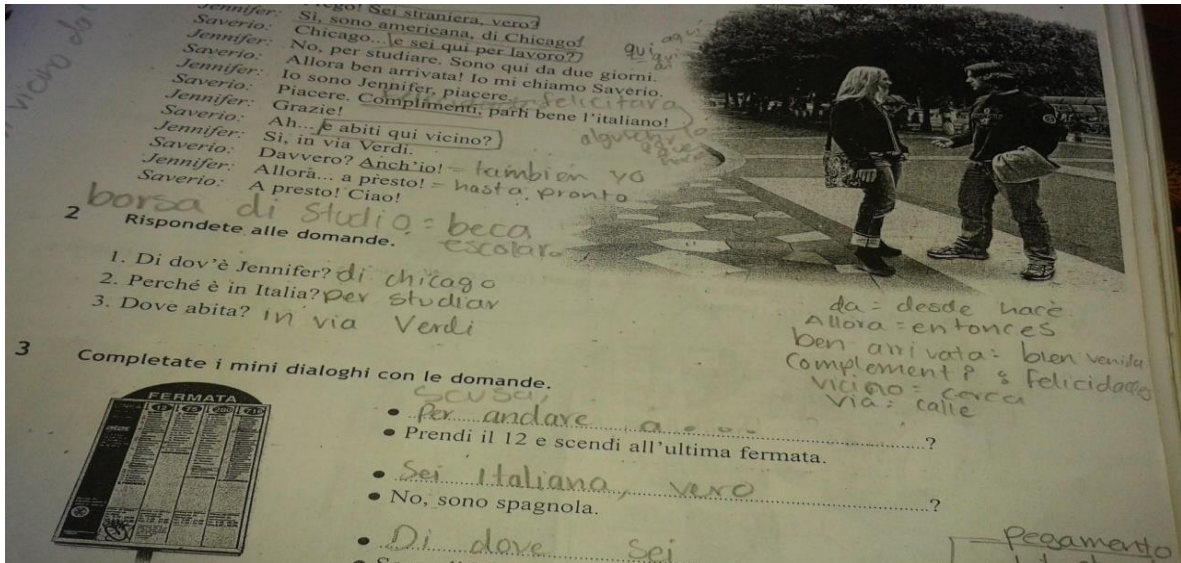 Jennifer: Prego! Sei straniera, vero?
Saverio: Sì, sono americana, di Chicago!
Jennifer: Chicago... e sei qui per lavoro?
Saverio: No, per studiare. Sono qui da due giorni.
Jennifer: Allora ben arrivata! Io mi chiamo Saverio.
Saverio: Io sono Jennifer, piacere.
Jennifer: Piacere. Complimenti, parli bene l'italiano!
Saverio: Grazie!
Jennifer: Ah... e abiti qui vicino?
Saverio: Sì, in via Verdi.
Jennifer: Davvero? Anch'io! = tambien yo
Saverio: Allora... a presto! = hasta pronto
A presto! Ciao!
qui
felicitara
borsa di studio = beca
escolar
2 Rispondete alle domande.
1. Di dov'è Jennifer? di chicago
2. Perché è in Italia? per studiar
3. Dove abita? in via Verdi
da = desde hace
Allora = entonces
ben arrivata = bien venida
felicidades
vicino = cerca
via = calle
3 Completate i mini dialoghi con le domande.
FERMATA
scusa,
• Per andare a ... ?
• Prendi il 12 e scendi all'ultima fermata.
• Sei Italiana, vero ?
• No, sono spagnola.
• Di dove sei
pegamento